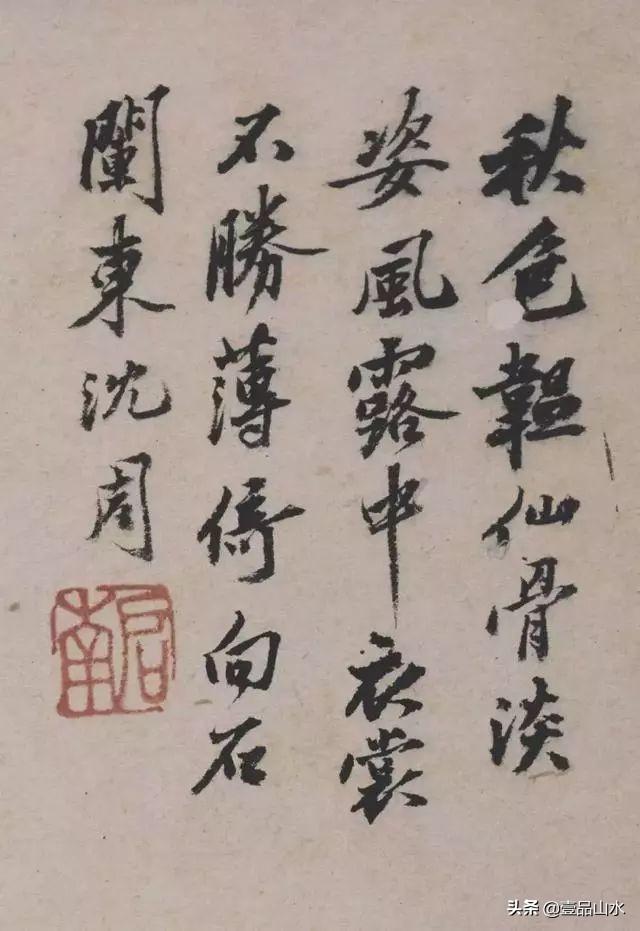 秋色韞仙骨淡
姿風露中衣裳
不勝薄倚向石
闌東沈周
启南
头条 @壹品山水